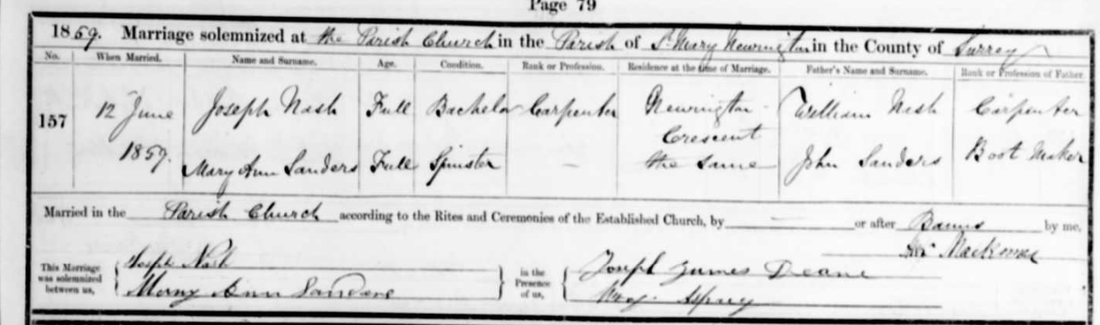 Page 79
1859. Marriage solemnized at the Parish Church in the Parish of St. Mary Newington in the County of Surrey
No. When Married. Name and Surname. Age. Condition. Rank or Profession. Residence at the time of Marriage. Father's Name and Surname. Rank or Profession of Father.
157 12 June 1859. Joseph Nash Full Bachelor Carpenter Newington Crescent William Nash Carpenter
Mary Ann Sanders Full Spinster — the same John Sanders Boot Maker
Married in the Parish Church according to the Rites and Ceremonies of the Established Church, by — or after Banns by me,
This Marriage was solemnized between us, Joseph Nash Mary Ann Sanders in the Presence of us, Joseph James Deane